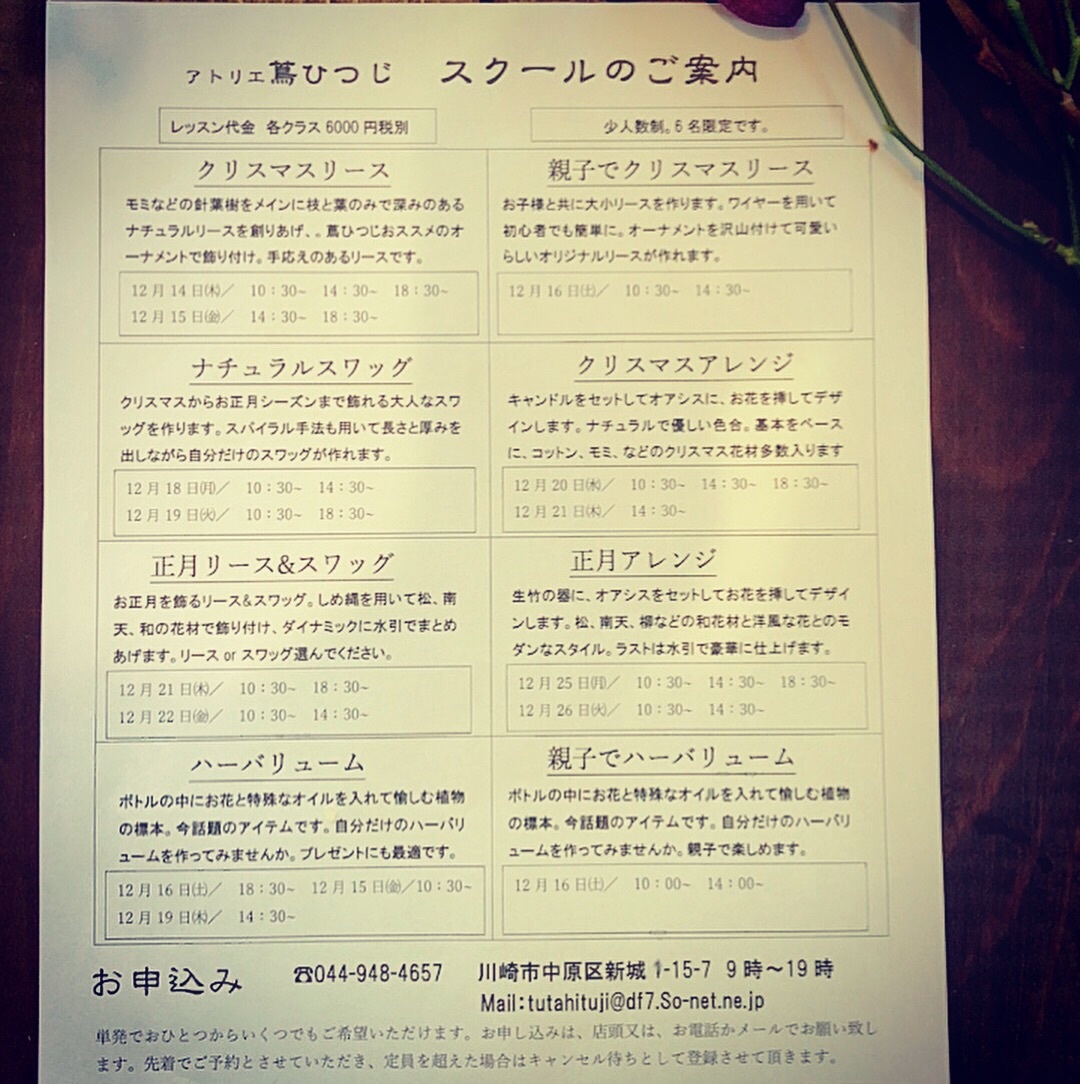 アトリエ蔦ひつじ　スクールのご案内
レッスン代金 各クラス6000円税別
少人数制。6名限定です。
クリスマスリース
モミなどの針葉樹をメインに枝と葉のみで深みのある
ナチュラルリースを創りあげ、。蔦ひつじおススメのオ
ーナメントで飾り付け。手応えのあるリースです。
12月14日㈭／　10：30~　14：30~　18：30~
12月15日㈮／　14：30~　18：30~
親子でクリスマスリース
お子様と共に大小リースを作ります。ワイヤーを用いて
初心者でも簡単に。オーナメントを沢山付けて可愛い
らしいオリジナルリースが作れます。
12月16日㈯／　10：30~　14：30~
ナチュラルスワッグ
クリスマスからお正月シーズンまで飾れる大人なスワ
ッグを作ります。スパイラル手法も用いて長さと厚みを
出しながら自分だけのスワッグが作れます。
12月18日㈪／　10：30~　14：30~
12月19日㈫／　10：30~　18：30~
クリスマスアレンジ
キャンドルをセットしてオアシスに、お花を挿してデザ
インします。ナチュラルで優しい色合。基本をベース
に、コットン、モミ、などのクリスマス花材多数入ります
12月20日㈬／　10：30~　14：30~　18：30~
12月21日㈭／　14：30~
正月リース&スワッグ
お正月を飾るリース&スワッグ。しめ縄を用いて松、南
天、和の花材で飾り付け、ダイナミックに水引でまとめ
あげます。リース or スワッグ選んでください。
12月21日㈭／　10：30~　18：30~
12月22日㈮／　10：30~　14：30~
正月アレンジ
生竹の器に、オアシスをセットしてお花を挿してデザイ
ンします。松、南天、柳などの和花材と洋風な花とのモ
ダンなスタイル。ラストは水引で豪華に仕上げます。
12月25日㈪／　10：30~　14：30~　18：30~
12月26日㈫／　10：30~　14：30~
ハーバリューム
ボトルの中にお花と特殊なオイルを入れて愉しむ植物
の標本。今話題のアイテムです。自分だけのハーバリ
ュームを作ってみませんか。プレゼントにも最適です。
12月16日㈯／　18：30~　12月15日㈮／10：30~
12月19日㈭／　14：30~
親子でハーバリューム
ボトルの中にお花と特殊なオイルを入れて愉しむ植物
の標本。今話題のアイテムです。自分だけのハーバリ
ュームを作ってみませんか。親子で楽しめます。
12月16日㈯／　10：00~　14：00~
お申込み　☎044-948-4657　川崎市中原区新城1-15-7　9時～19時
Mail：tutahituji@df7.So-net.ne.jp
単発でおひとつからいくつでもご希望いただけます。お申し込みは、店頭又は、お電話かメールでお願い致し
ます。先着でご予約とさせていただき、定員を超えた場合はキャンセル待ちとして登録させて頂きます。